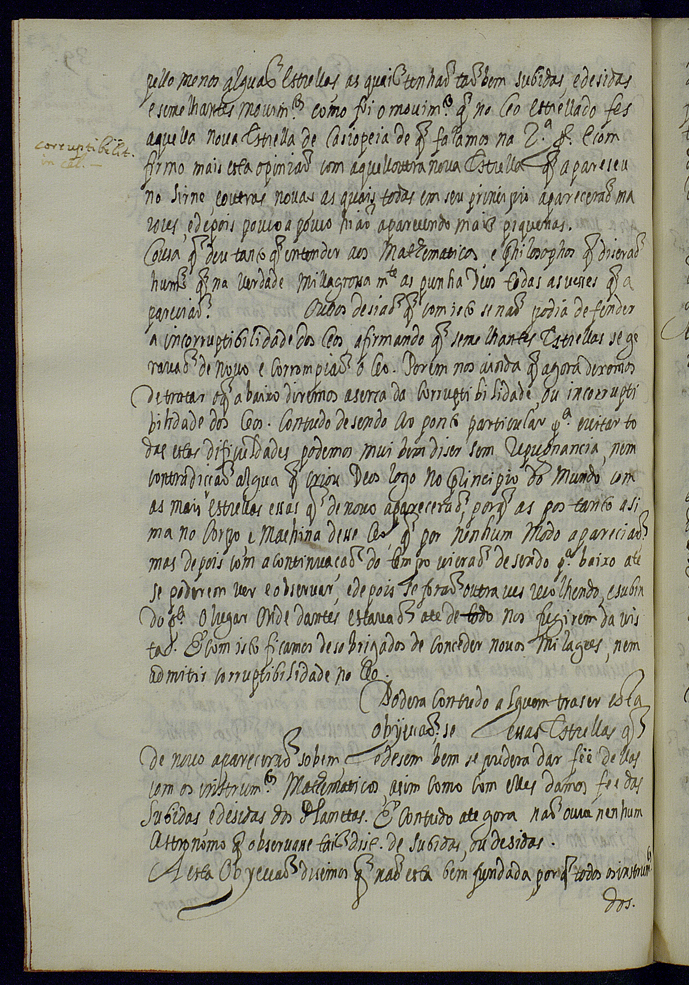 pello menos algũas Estrellas as quais tenhaõ taõ bem subidas, e desidas
e semelhantes movim.tos como foi o movim.to q̃ no Ceo Estrellado fes
aquella nova Estrella de Casiopeia de q̃ falamos na 2.ª p. E com
corruptibilit.
in cœl. –
firmo mais esta opiniaõ com aquelloutra nova Estrella q̃ apareseu
no Sirne e outras novas as quais todas em seu principio apareceraõ ma
iores, e depois pouco a pouco hiaõ aparecendo mais piquenas.
Cousa q̃ deu tanto q̃ entender aos Mathematicos, e Philosophos q̃ diseraõ
huns q̃ na verdade millagrosa m.te as punha Deos todas as veses q̃ a
pareciaõ. Outros desiaõ q̃ com isto se naõ podia defender
a incorruptibilidade dos Ceos afirmando q̃ semelhantes Estrellas se ge
ravaõ de novo e corrompiaõ o Ceo. Porem nos ainda q̃ agora deixemos
de tratar o q̃ abaixo diremos aserca da Corruptibilidade, ou incorrupti
bilidade dos Ceos. Contudo desendo ao ponto particular p.ª evitar to
das estas dificuldades podemos mui bem diser sem repugnancia, nem
contradiçaõ algũa q̃ criou Deos logo no principio do Mundo, com
as mais estrellas essas q̃ de novo apareceraõ, porq̃ as pos tanto asi
ma no Corpo e Machina desse Ceo q̃ por nenhum modo apareciaõ
mas depois com a continuacaõ do tempo vieraõ desendo p.ª baixo ate
se poderem ver e observar, e depois se foraõ outra ves recolhendo, e subin
do p.ª o lugar onde dantes estavaõ ate de todo nos fugirem da vis
ta. E com isto ficamos desobrigados de conceder novos milagres, nem
admitir corruptibilidade no Ceo.
Podera contudo alguem traser esta
objecçaõ: se essas Estrellas q̃
de novo apareceraõ sobem e desem bem se pudera dar fee dellas
com os instrum.tos Mathematicos, asim como com elles damos fee das
Subidas e desidas dos Planetas. E contudo ate gora naõ ouve nenhum
Astronomo q̃ observase tais dist. de subidas, ou desidas.
A esta Objecçaõ disemos q̃ naõ esta bem fundada, porq̃ todos os instrum.tos
dos.